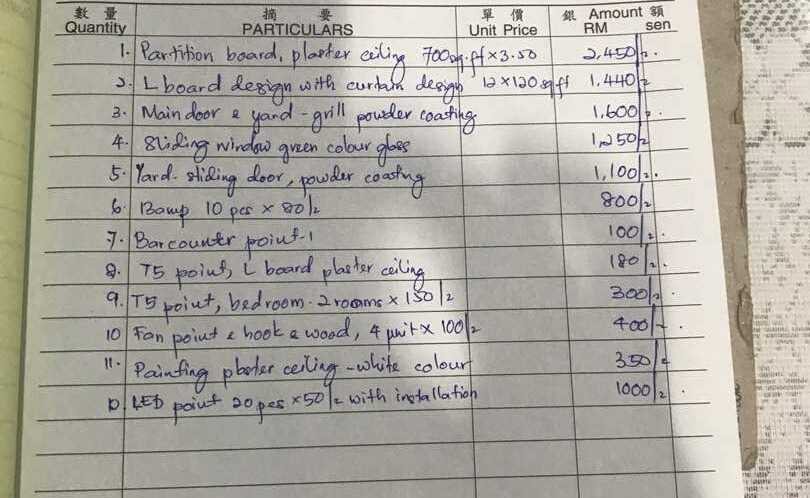 數 量 摘 要 單 價 銀 Amount 額
Quantity PARTICULARS Unit Price RM sen
1. Partition board, plaster ceiling 700sq.ft x 3.50 2,450/-
2. L board design with curtain design 12 x 120 sq ft 1.440/-
3. Main door & yard - grill powder coating 1,600/-
4. Sliding window green colour glass 1,250/-
5. Yard - sliding door, powder coating 1,100/-
6. 10 pcs x 80/- 800/-
7. Bar counter point - 1 100/-
8. T5 point, L board plaster ceiling 180/-
9. T5 point, bedroom - 2 rooms x 150/- 300/-
10 Fan point & hook & wood, 4 unit x 100/- 400/-
11. Painting plaster ceiling - white colour 350/-
LED point 20 pcs x 50/- with installation 1000/-